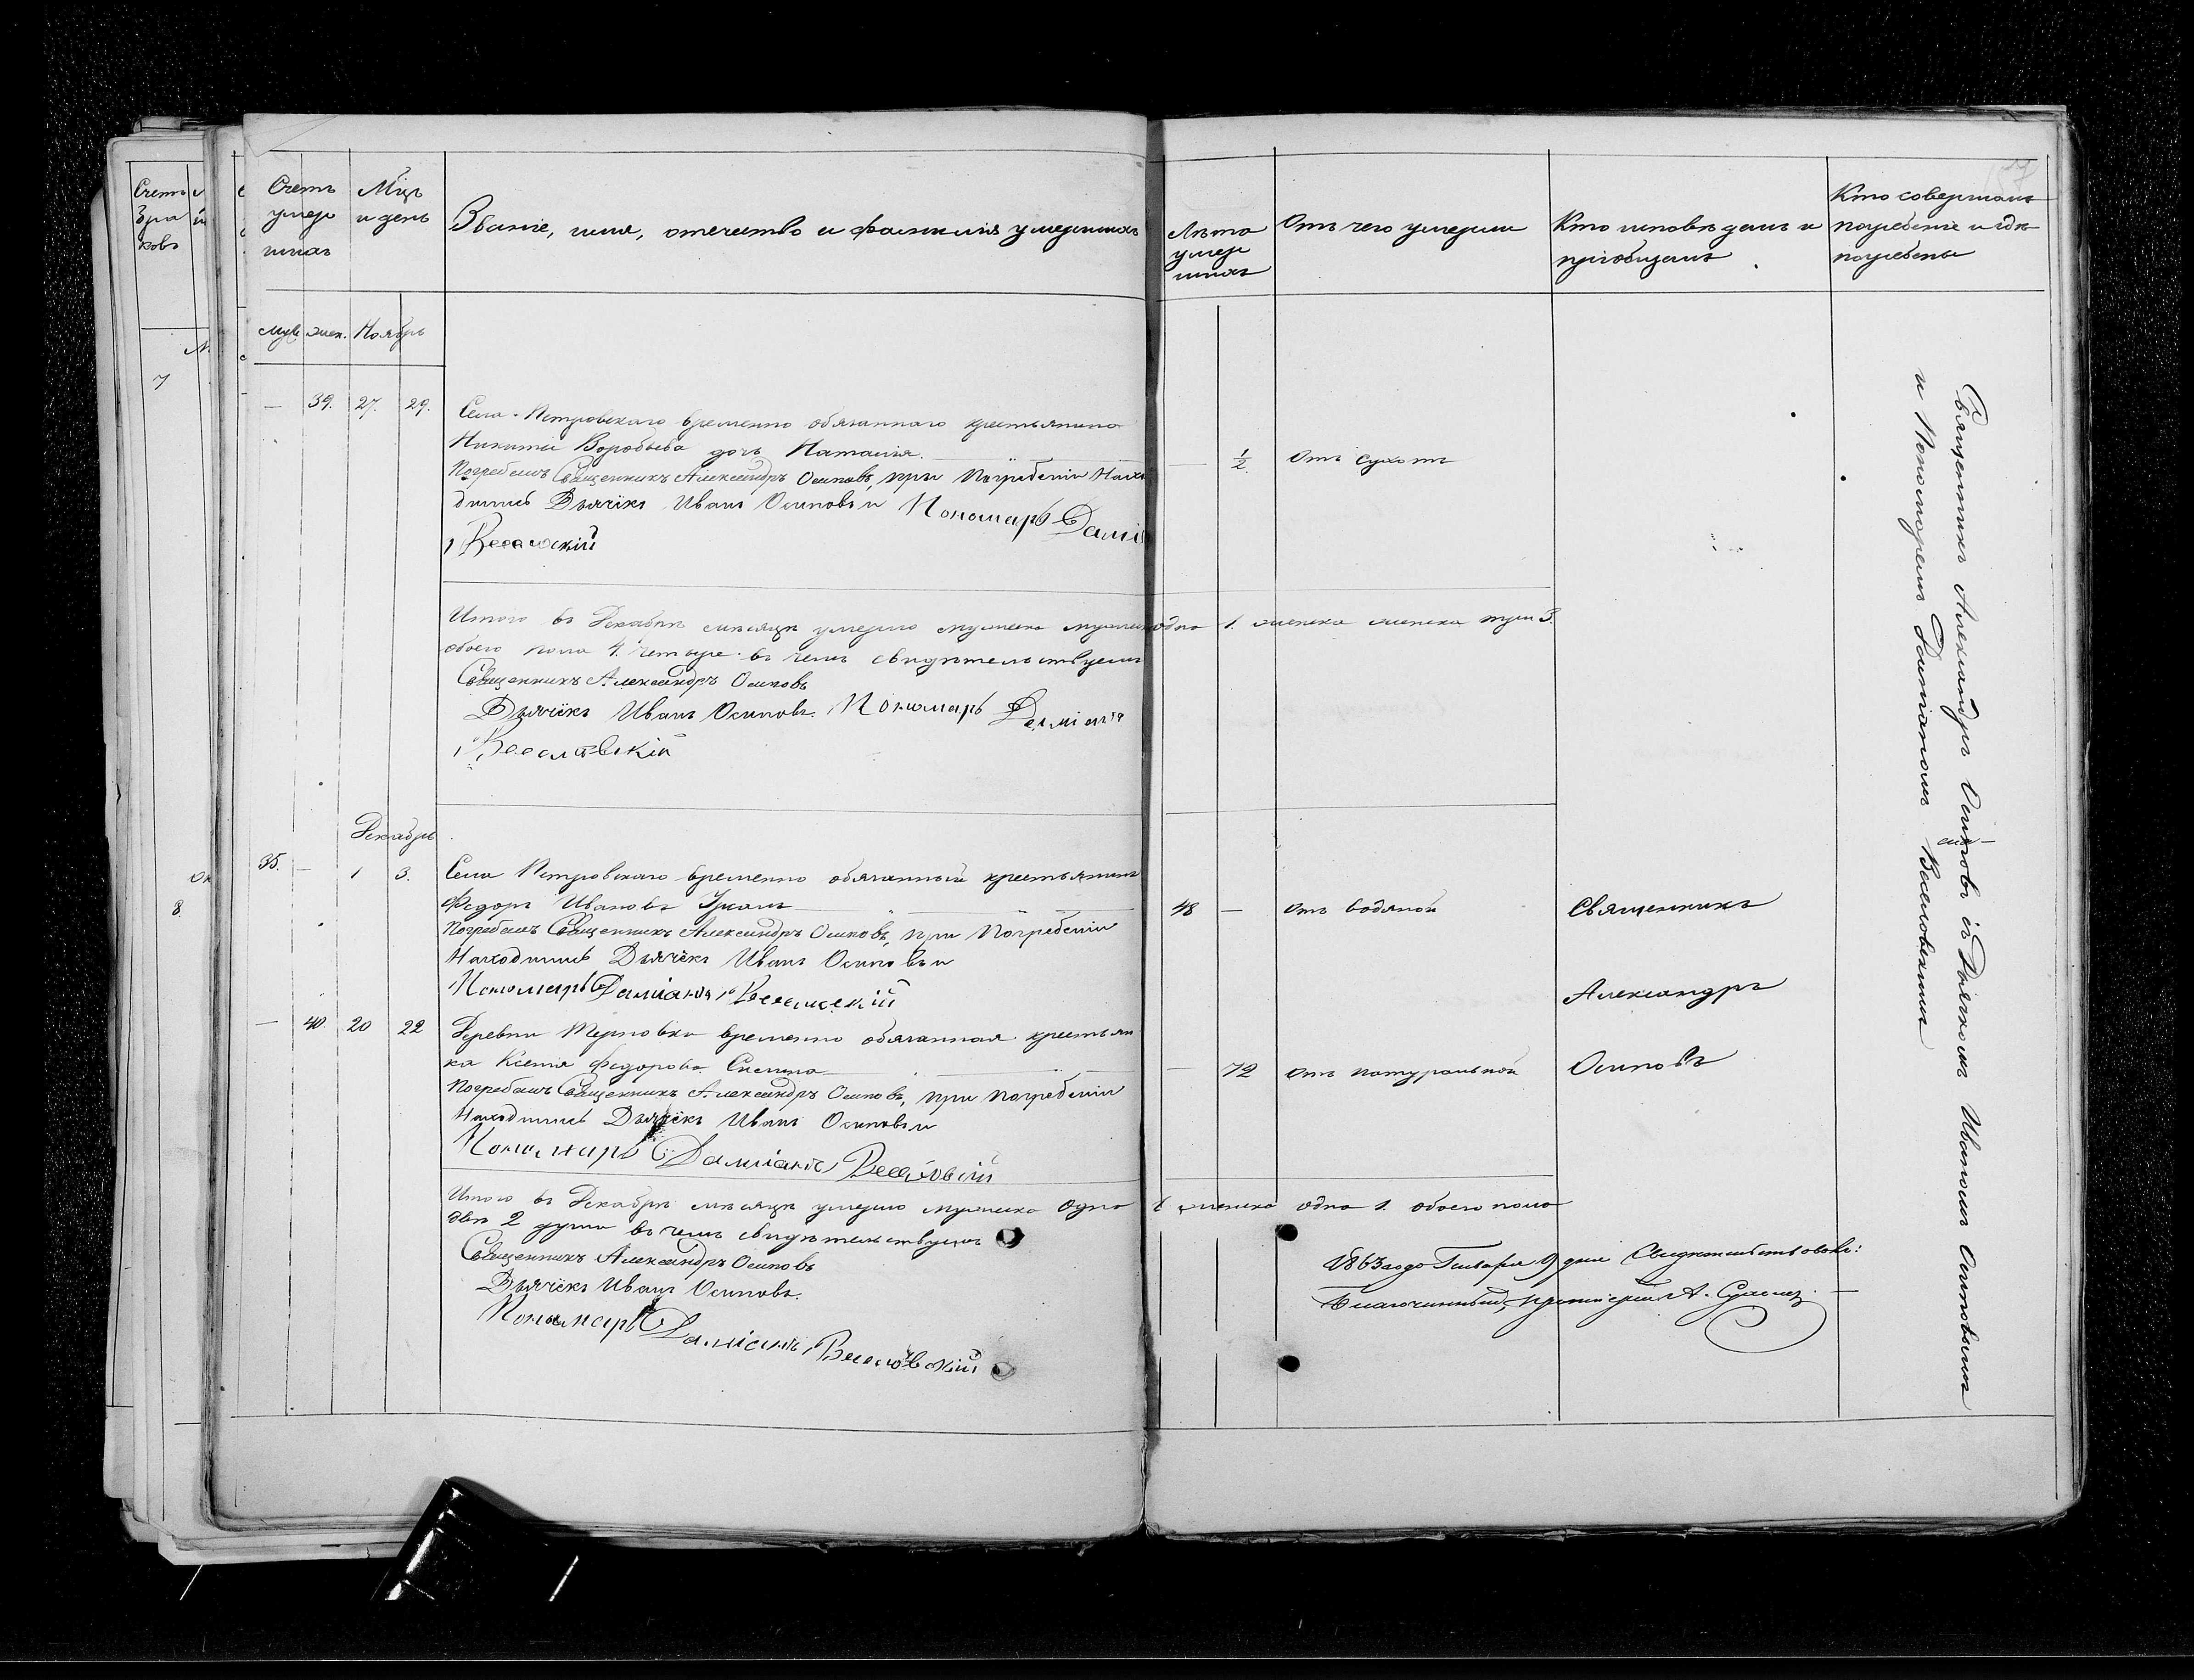 Счетъ
бра
ковъ
7
8
Счетъ
умер
шихъ
Мцъ
и день
Званіе, имя, отечество и фамилія умершихъ
Лѣта
умер
шихъ
Отъ чего умерли
Кто исповѣдалъ и
пріобщалъ
Кто совершалъ
погребеніе и гдѣ
погребены
муж. жен. Ноябрь
— 39. 27. 29.
Села Петровскаго временно обязаннаго крестьянина
Никиты Воробьева дочь Наталія.
1/2. Отъ сухотъ
Погребалъ Священникъ Александръ Осиповъ, при Погребеніи Нахо
дились Дьячекъ Иванъ Осиповъ и Пономарь Дамі
Веселовскій
Итого въ Декабрѣ мѣсяцѣ умерло мужеска одна 1. женска женска три 3.
обоего пола 4. четыре въ чемъ свидѣтельствуемъ
Священникъ Александръ Осиповъ
Дьячекъ Иванъ Осиповъ. Пономарь Даміанъ
Веселовскій
Декабрь
35. — 1 3.
Села Петровскаго временно обязанный крестьянинъ
Федоръ Ивановъ
48 — Отъ водяной Священникъ
Погребалъ Священникъ Александръ Осиповъ, при Погребеніи
Находились Дьячекъ Иванъ Осиповъ и
Пономарь Даміанъ Веселовскій
Александръ
— 40. 20 22
Деревни Терновки временно обязанная крестьян
ка Ксенія Федорова
— 72 Отъ натуральной Осиповъ
Погребалъ Священникъ Александръ Осиповъ, при Погребеніи
Находились Дьячекъ Иванъ Осиповъ и
Пономарь Даміанъ Веселовскій
Итого въ Декабрѣ мѣсяцѣ умерло мужеска одна 1 женска одна 1. обоего пола
двѣ 2 души въ чемъ свидѣтельствуемъ
Священникъ Александръ Осиповъ
Дьячекъ Иванъ Осиповъ.
Пономарь Даміанъ Веселовскій
1863 года Генваря 9 дня Свидѣтельствовалъ:
Благочинный, протоіерей А.
Священникъ Александръ Осиповъ съ Дьячкомъ Иваномъ Осиповымъ
и Пономаремъ Даміаномъ Веселовскимъ